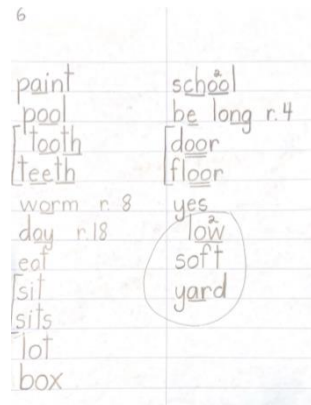 6
paint
pool
tooth
teeth
worm r. 8
day r.18
eat
sit
sits
lot
box
school
2
be long r.4
door
floor
yes
low
2
soft
yard